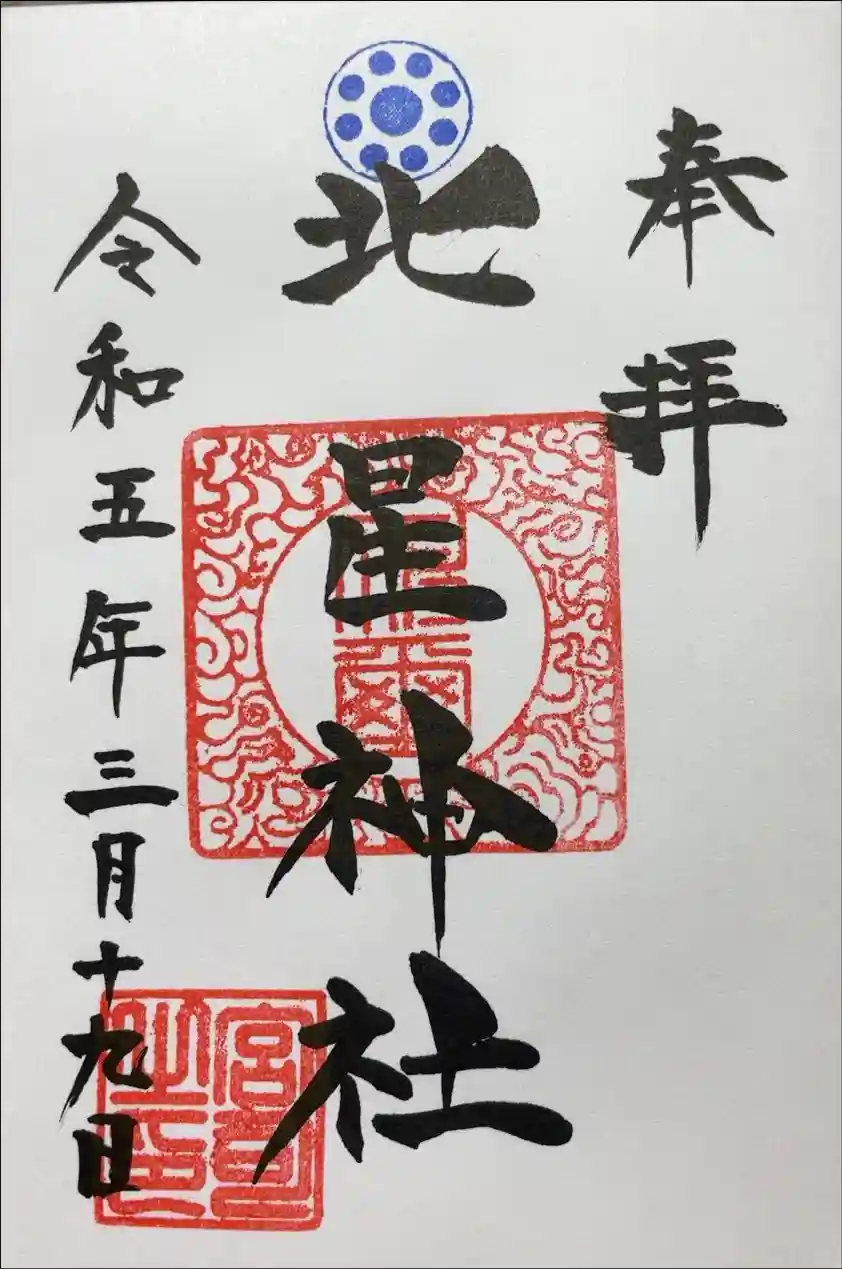 奉拝
北星神社
令和五年三月十九日
宮司之印